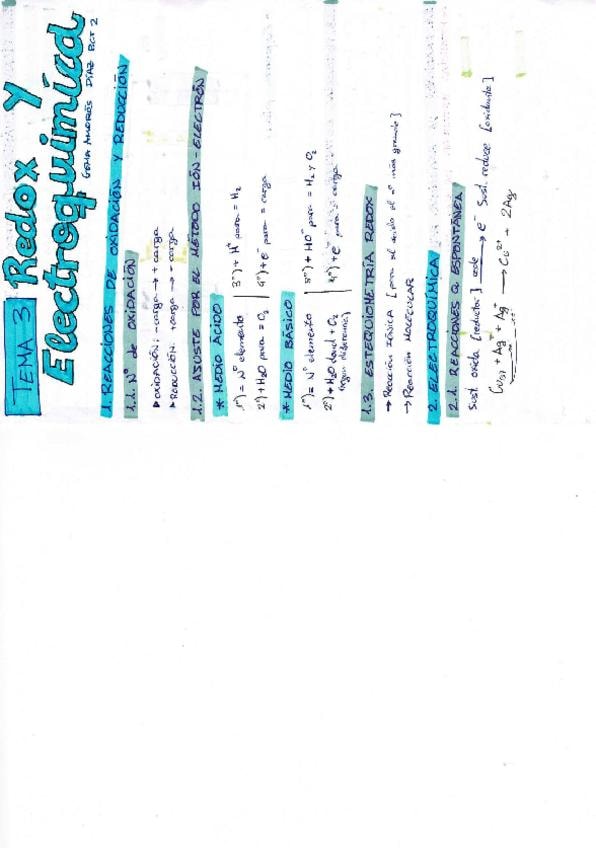 TEMA 3 Redox y
Electroquímica
GEMA AMORÓS DÍAZ BCT 2
1. REACCIONES DE OXIDACIÓN Y REDUCCIÓN
1.1. Nº de OXIDACIÓN
▸OXIDACIÓN: -carga → + carga
▸REDUCCIÓN: +carga → - carga
1.2. AJUSTE POR EL MÉTODO IÓN-ELECTRÓN
* MEDIO ÁCIDO
1º) = Nº elemento | 3º) + H⁺ para = H₂
2º) + H₂O para = O₂ | 4º) + e⁻ para = carga
* MEDIO BÁSICO
1º) = Nº elemento | 3º) + HO⁻ para = H₂ y O₂
2º) + H₂O donde + O₂ | 4º) + e⁻ para = carga
(según diferencia)
1.3. ESTEQUIOMETRÍA REDOX
→ Reacción IÓNICA [para el ácido el nº más grande]
→ Reacción MOLECULAR
2. ELECTROQUÍMICA
2.1. REACCIONES Q ESPONTÁNEA
Sust oxida [reductor] cede → e⁻ Sust reduce [oxidante]
Cu(s) + Ag⁺ + Ag⁺ → Cu²⁺ + 2Ag